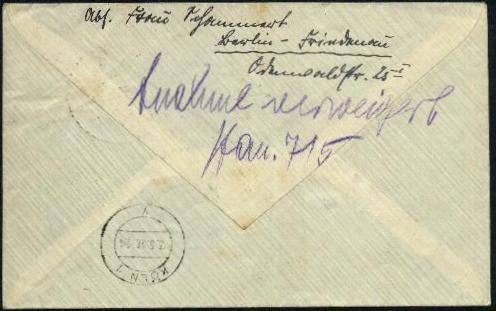 Abs. Frau Schammert
Berlin - Friedenau
Odenwaldstr. 25 I
Annahme verweigert
715
KÖLN 1